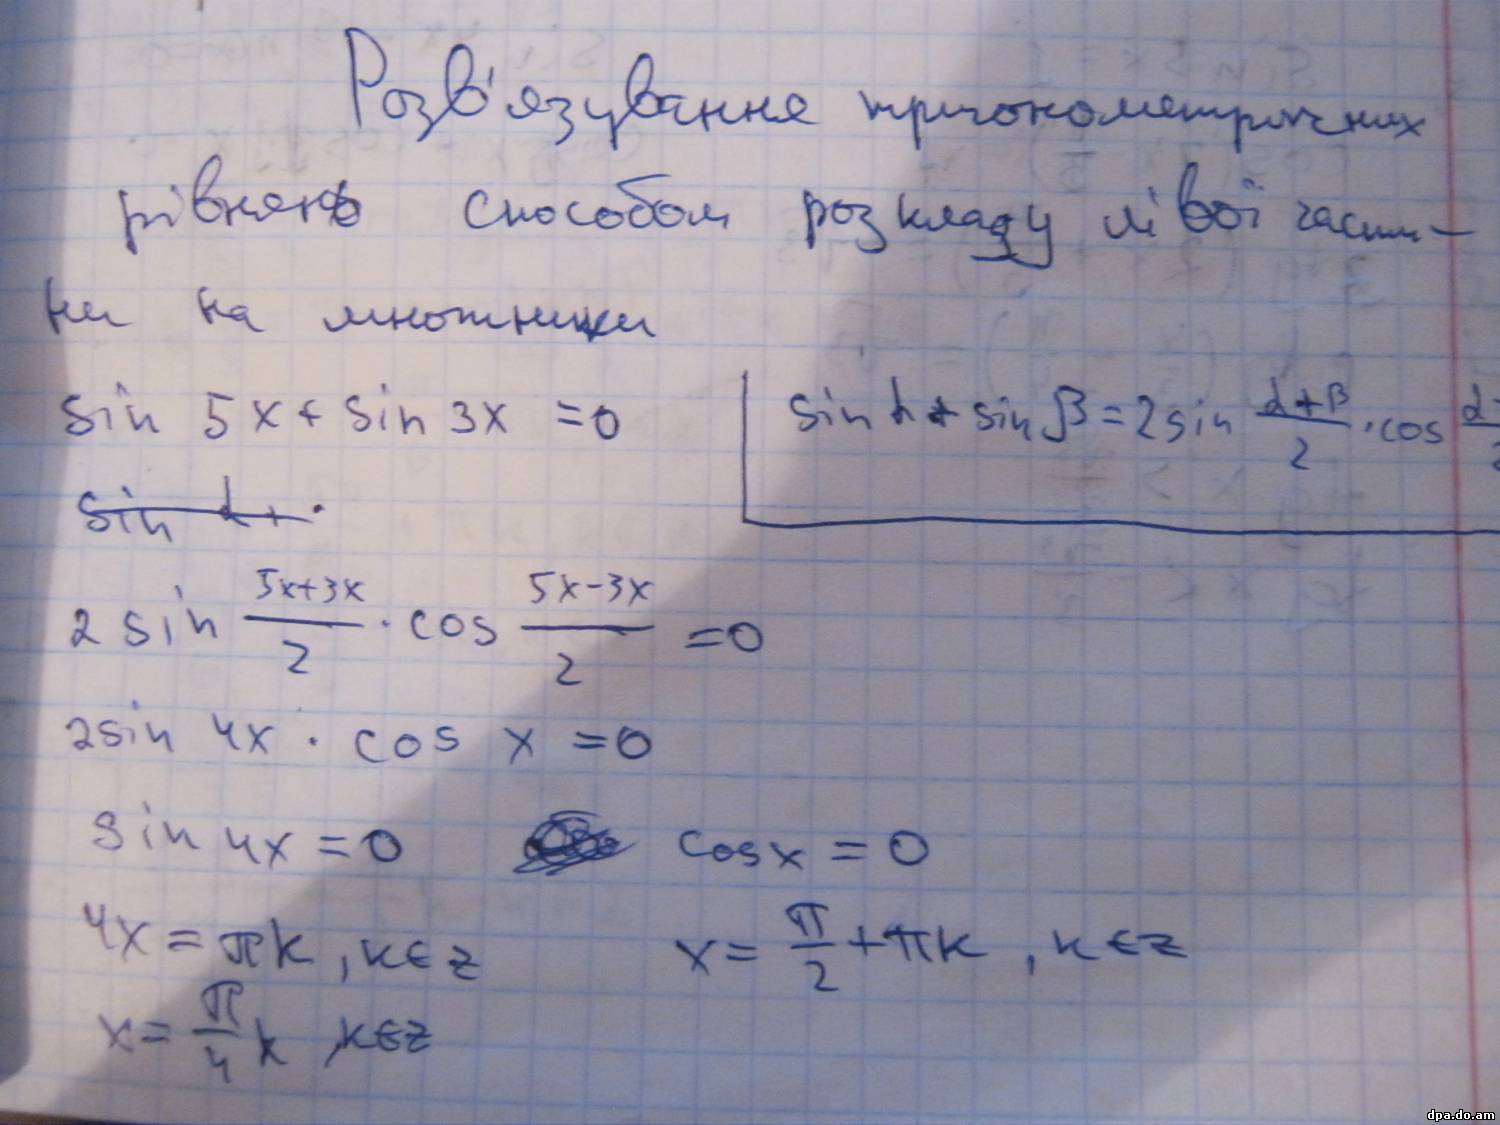 Розв'язування тригонометричних
рівнянь способом розкладу лівої части-
ни на множники
sin 5x + sin 3x = 0
sin α + sin β = 2 sin (α+β)/2 · cos
sin α +
2 sin (5x+3x)/2 · cos (5x-3x)/2 = 0
2sin 4x · cos x = 0
sin 4x = 0 cos x = 0
4x = πk, k∈z x = π/2 + πk, k∈z
x = π/4 k, k∈z
dpa.do.am